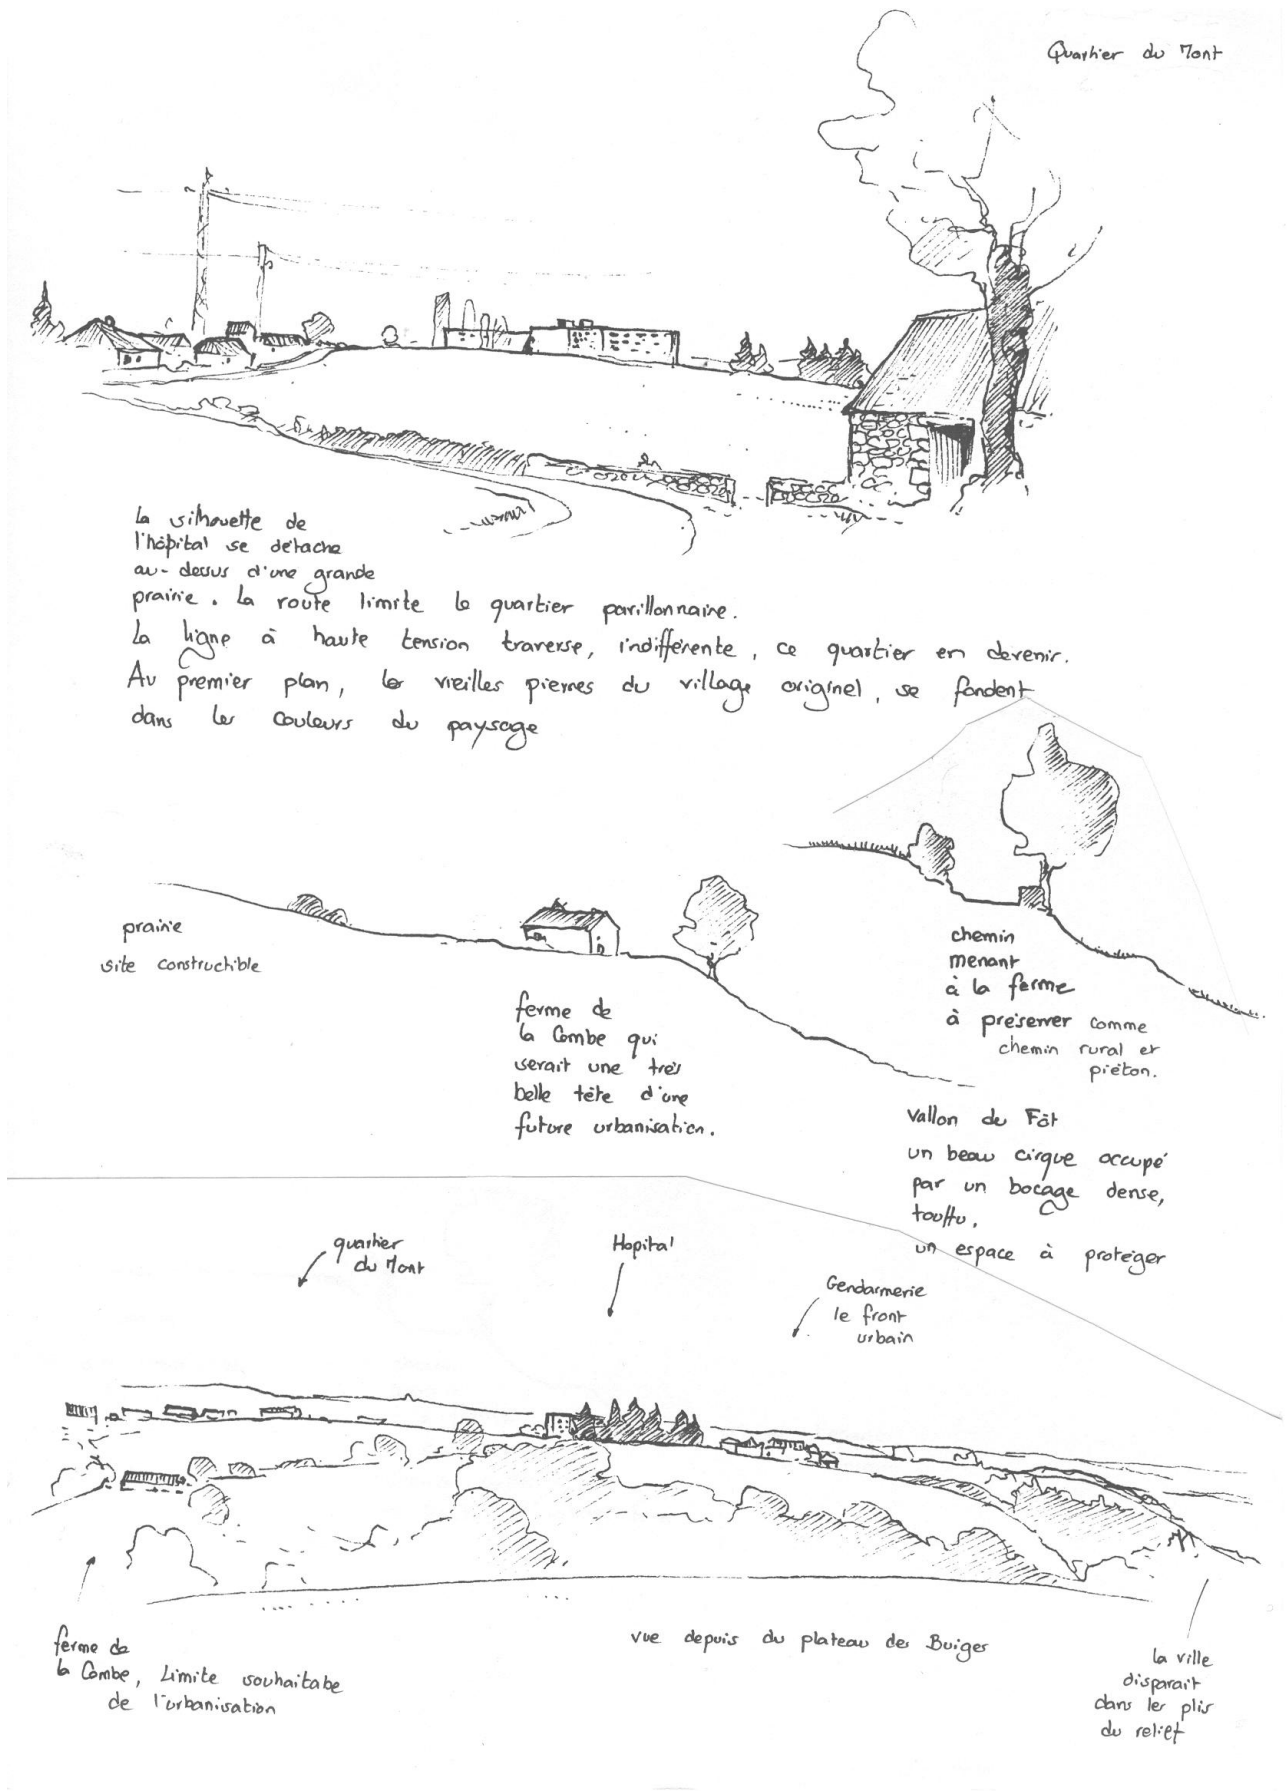 Quartier du Mont
La silhouette de
l'hôpital se détache
au-dessus d'une grande
prairie. La route limite le quartier pavillonnaire.
La ligne à haute tension traverse, indifférente, ce quartier en devenir.
Au premier plan, les vieilles pierres du village originel, se fondent
dans les couleurs du paysage
prairie
site constructible
ferme de
la Combe qui
serait une très
belle tête d'une
future urbanisation.
chemin
menant
à la ferme
à préserver comme
chemin rural et
piéton.
Vallon du Fôt
un beau cirque occupé
par un bocage dense,
touffu,
un espace à protéger
quartier
du Mont
Hopital
Gendarmerie
le front
urbain
ferme de
la Combe, Limite souhaitabe
de l'urbanisation
vue depuis du plateau des Buiges
la ville
disparait
dans les plis
du relief